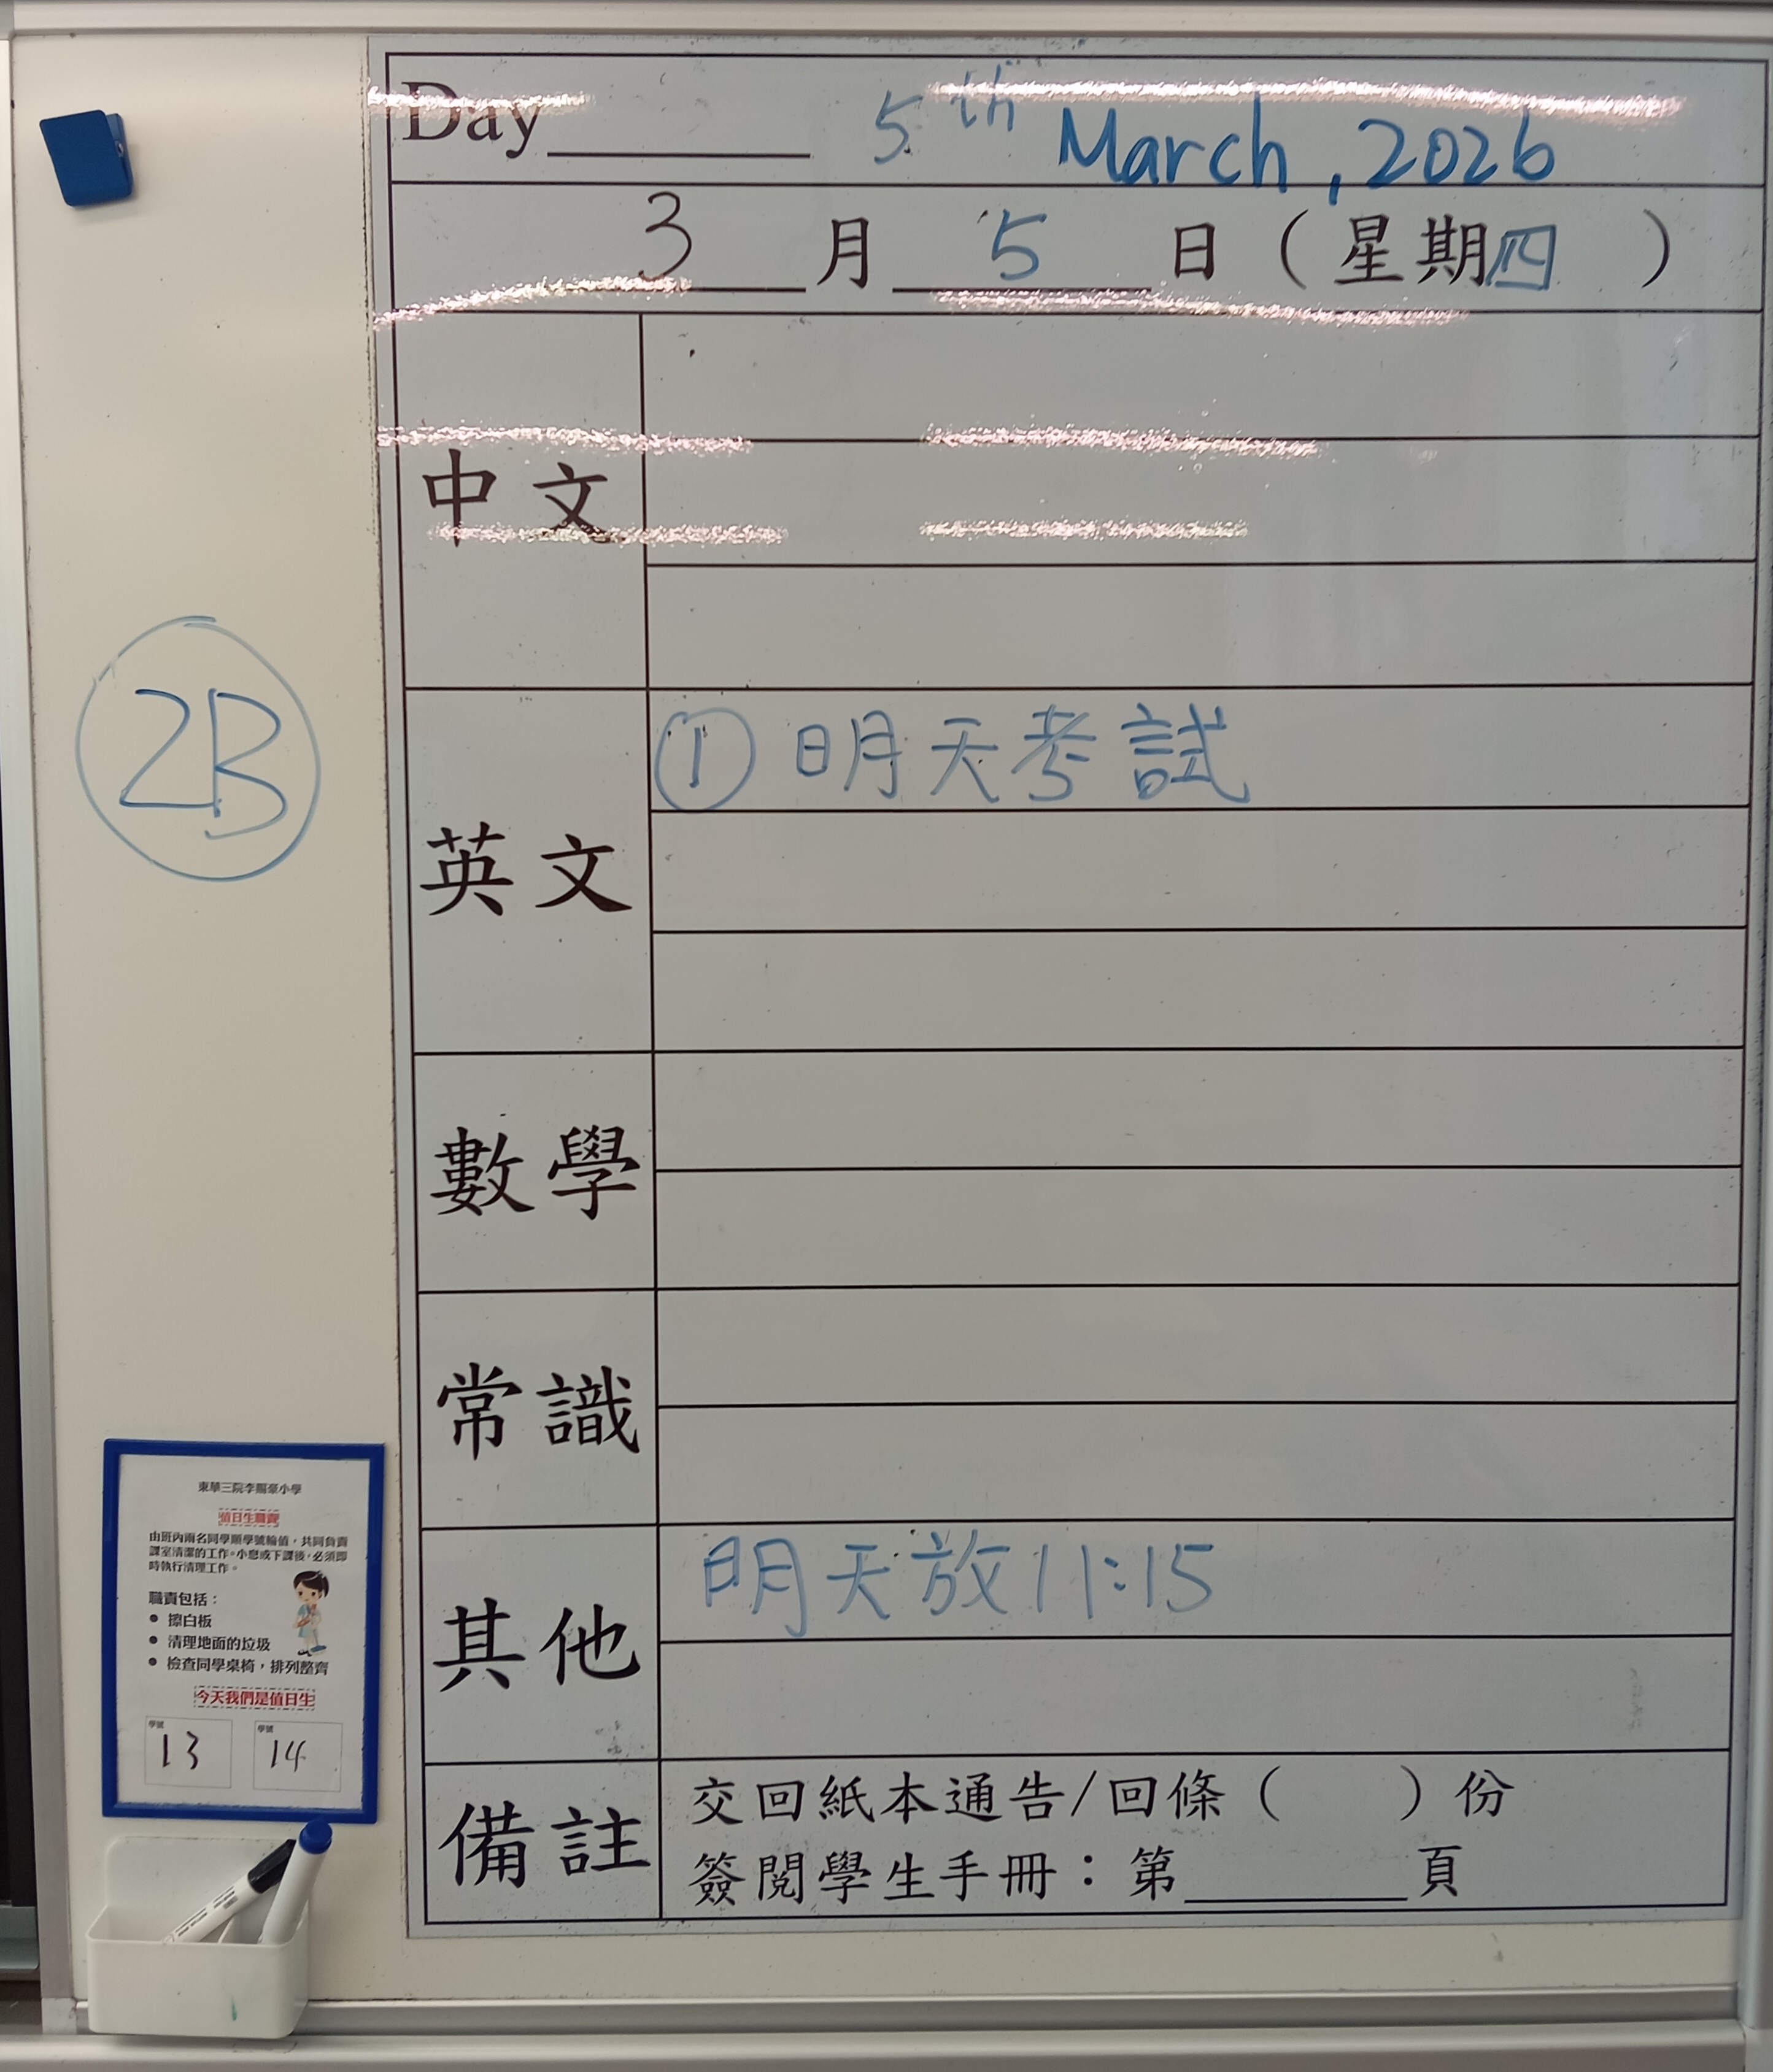 Day______ 5th March, 2026
3月5日（星期四）
中文
英文
① 明天考試
數學
常識
其他
明天放11:15
備註
交回紙本通告/回條（　　）份
簽閱學生手冊：第______頁
2B
東華三院李賜豪小學
值日生職責
由班內兩名同學順學號輪值，共同負責
課室清潔的工作。小息或下課後，必須即
時執行清理工作。
職責包括：
● 擦白板
● 清理地面的垃圾
● 檢查同學桌椅，排列整齊
今天我們是值日生
學號 13 學號 14